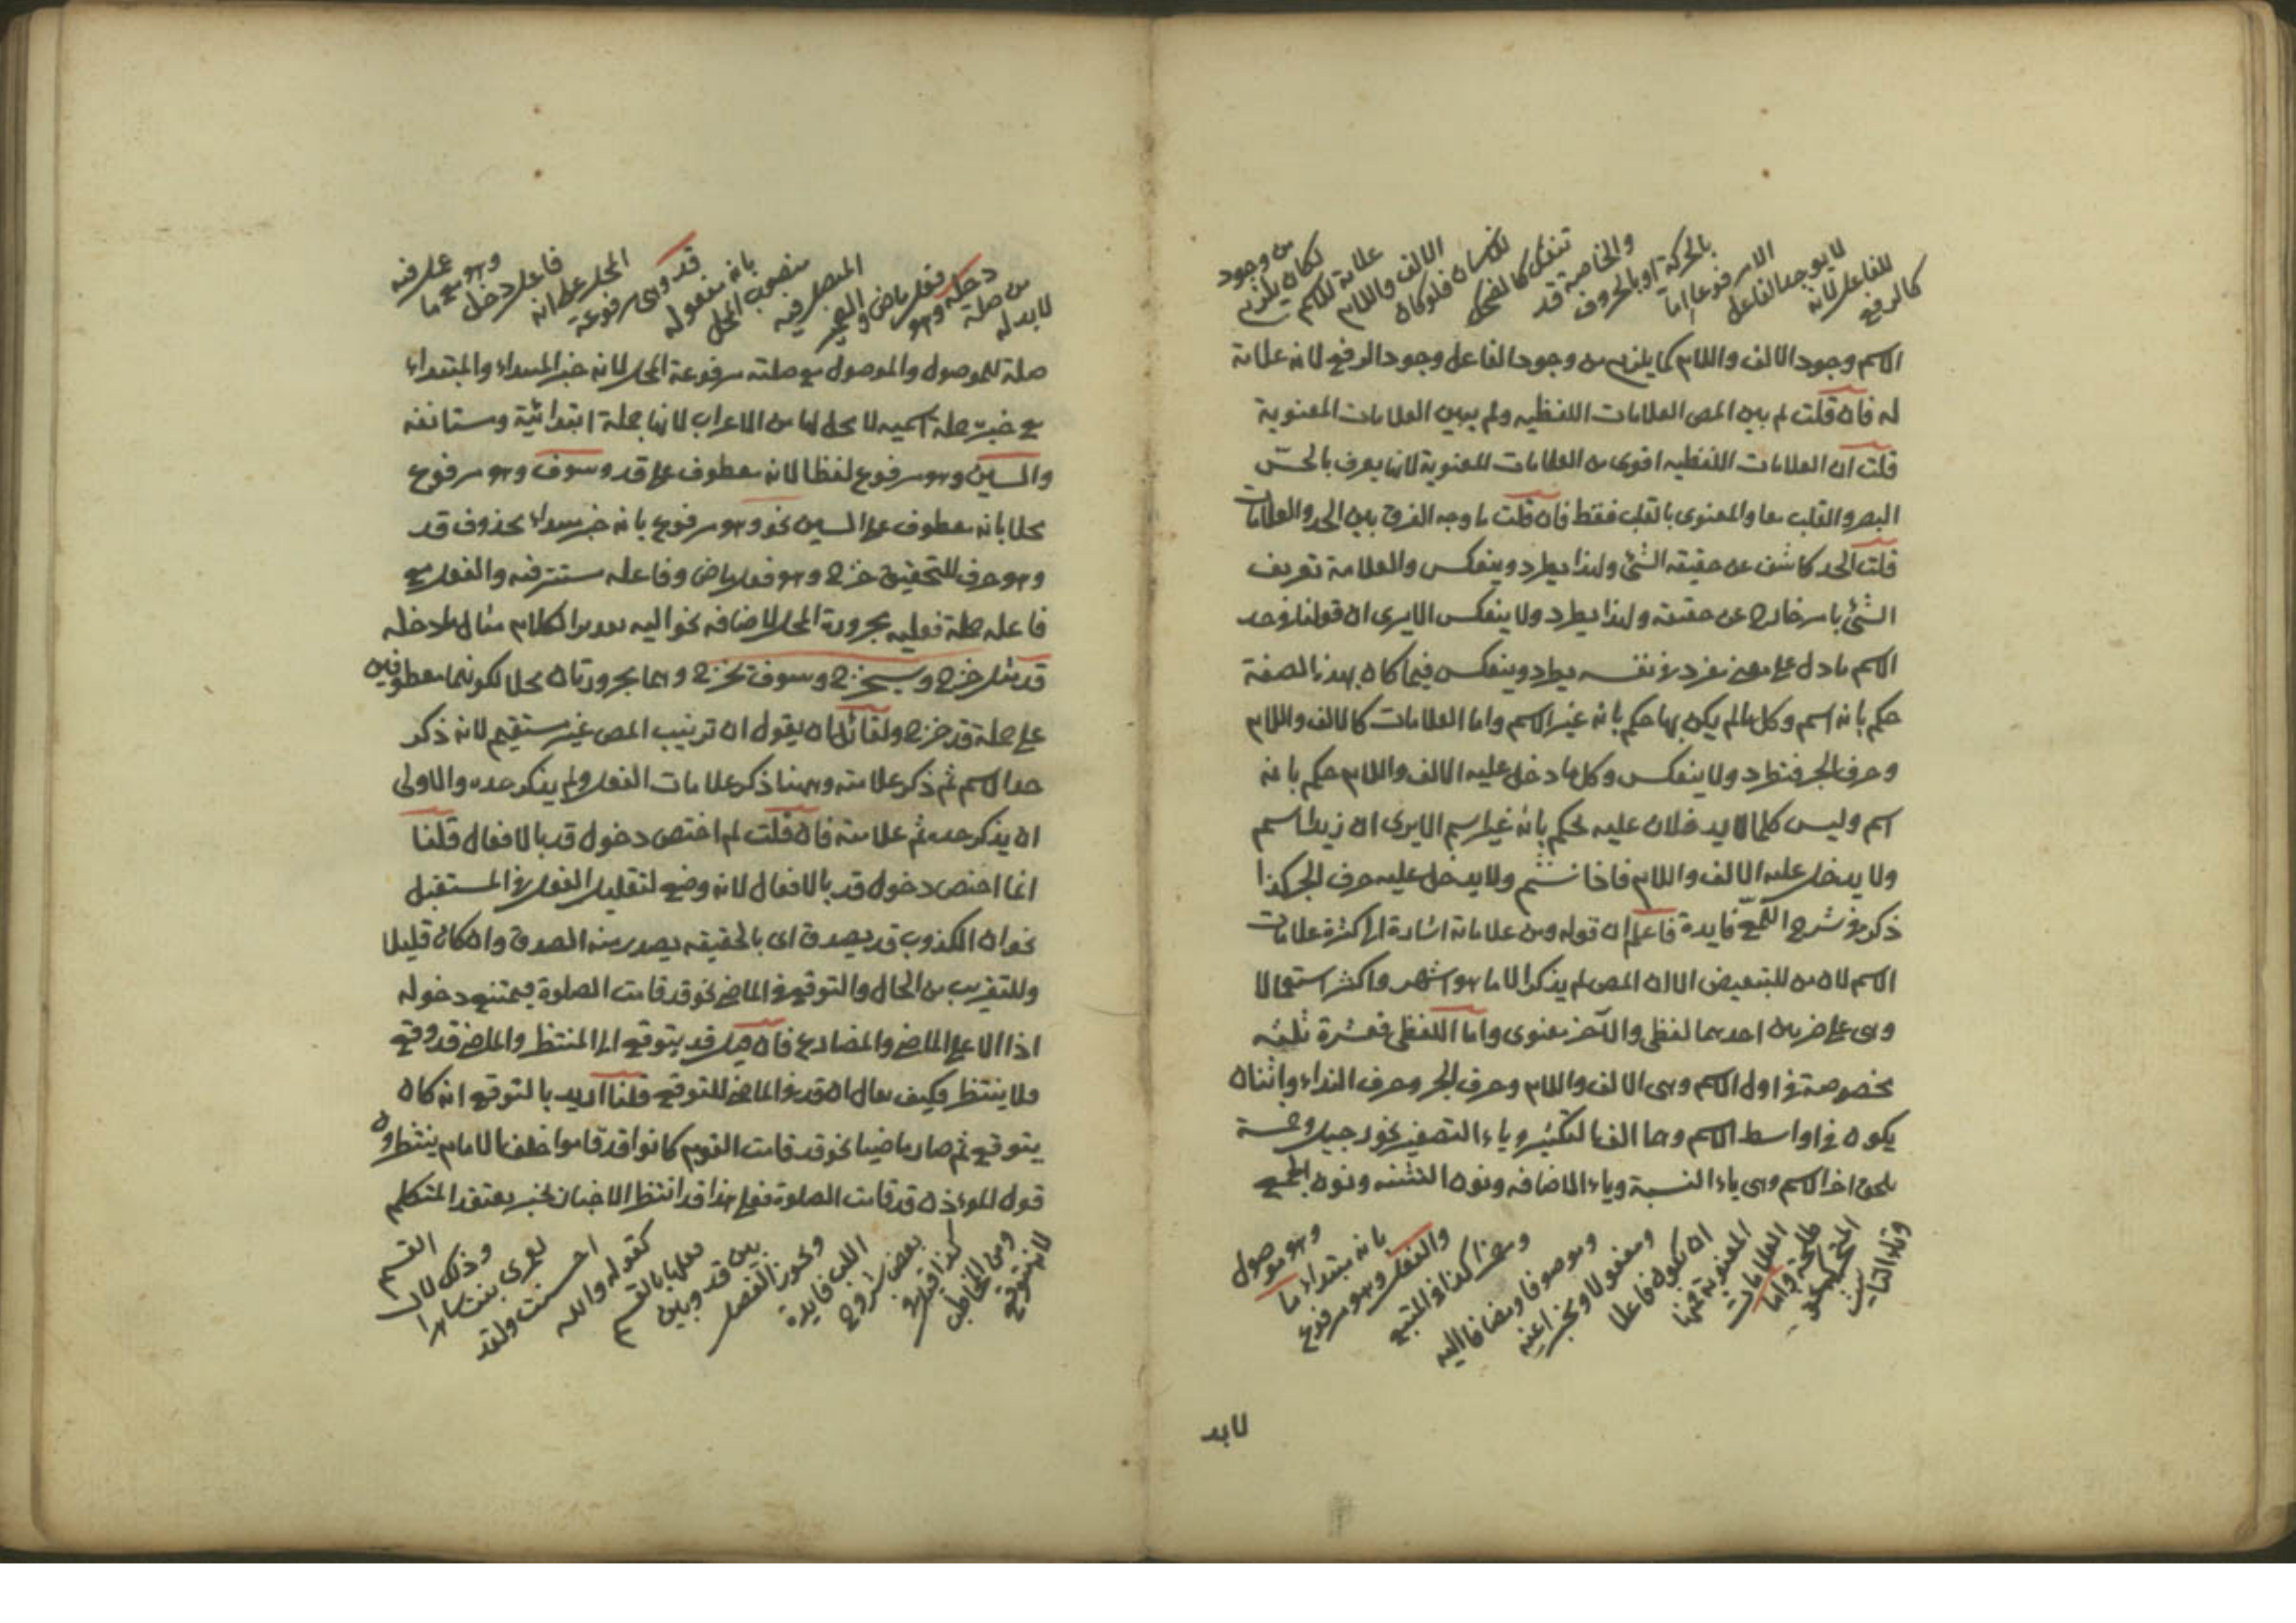 كالرفع للفاعل لانه لا يوجد الفاعل الا مرفوعا اما بالحركة او بالحروف والخاصة قد تنفك كالضحك للانسان فلو كان الالف واللام علامة للاسم لكان يلزم من وجود
الاسم وجود الالف واللام كما يلزم من وجود الفاعل وجود الرفع لانه علامة
له فان قلت لم بين المص العلامات اللفظيه ولم يبين العلامات المعنوية
قلت ان العلامات اللفظيه اقوى من العلامات المعنوية لانها يعرف بالحسّ
البصر والقلب معا والمعنوى بالقلب فقط فان قلت ما وجه الفرق بين الحد والعلامات
قلت الحد كاشف عن حقيقة الشئ ولهذا يطرد وينعكس والعلامة تعريف
الشئ بامر خارج عن حقيقته ولهذا يطرد ولا ينعكس الا يرى ان قولنا فى حد
الاسم ما دل على معنى مفرد فى نفسه يطرد وينعكس فيما كان بهذه الصفة
حكم بانه اسم وكل ما لم يكن بها حكم بانه غير الاسم واما العلامات كالالف واللام
وحرف الجر فتطرد ولا ينعكس وكل ما دخل عليه الالف واللام حكم بانه
اسم وليس كلما لا يدخلان عليه يحكم بانه غير اسم الا يرى ان زيدا اسم
ولا يدخل عليه الالف واللام فاذا نشتم ولا يدخل عليه حرف الجر كذا
ذكر فى شرح اللمع فايدة فاعلم ان قوله ومن علاماته اشارة الى كثرة علامات
الاسم لان من للتبعيض الا ان المص لم يذكر الا ما هو اشهر واكثر استعمالا
وهى على ضربين احدهما لفظى والآخر معنوى واما اللفظى فعشرة ثلثه
مخصوصة فى اول الاسم وهى الالف واللام وحرف الجر وحرف النداء واثنان
يكون فى اواسط الاسم وهما الف التكثير وياء التصغير نحو رجيل وخمسة
يلحق اخر الاسم وهى ياء النسبة وياء الاضافه ونون التثنيه ونون الجمع
وتاء التانيث المتحركة نحو طلحة واما العلامات المعنوية فمنها ان يكون فاعلا ومفعولا ومخبرا عنه وموصوفا ومضافا اليه وهذا كذا فى المتبع والفعل وهو مرفوع بانه مبتداء ما وهو موصول
لابد
لابد له من صلة دخله وهو فعل ماض والضمير المتصل فيه منصوب المحل بانه مفعوله قد وهى مرفوعة المحل على انه فاعل دخل وهو مع ما عمل فيه
صلة للموصول والموصول مع صلته مرفوعة المحل لانه خبر المبتداء والمبتداء
مع خبره جملة اسميه لا محل لها من الاعراب لانها جملة ابتدائية ومستانفه
والسين وهو مرفوع لفظا لانه معطوف على قد وسوف وهو مرفوع
محلا بانه معطوف على السين نحو وهو مرفوع بانه خبر مبتداء محذوف قد
وهو حرف للتحقيق خرج وهو فعل ماض وفاعله مستتر فيه والفعل مع
فاعله جملة فعليه مجرورة المحل لاضافه نحو اليه تقدير الكلام مثال ما دخله
قد مثل خرج وسيخرج وسوف يخرج وهما مجرورتان محلا لكونهما معطوفين
على جملة قد خرج ولقائل ان يقول ان ترتيب المص غير مستقيم لانه ذكر
حد الاسم ثم ذكر علامته وههنا ذكر علامات الفعل ولم يذكر حده والاولى
ان يذكر حده ثم علامته فان قلت لم اختص دخول قد بالافعال قلنا
انما اختص دخول قد بالافعال لانه وضع لتقليل الفعل فى المستقبل
نحو ان الكذوب قد يصدق اى بالحقيقه يصدر منه الصدق وان كان قليلا
وللتقريب من الحال والتوقع فى الماضى نحو قد قامت الصلوة فيمتنع دخوله
اذا الا على الماضى والمضارع فان قيل قد يتوقع الى المنتظر والماضى قد وقع
ولا ينتظر فكيف يقال ان قد فى الماضى للتوقع قلنا اريد بالتوقع انه كان
يتوقع ثم صار ماضيا نحو قد قامت القوم كانوا قد قاموا خلف الامام ينتظرون
قول المؤذن قد قامت الصلوة فعلى هذا قد انتظر الاخبار بخبر يعتقد المتكلم
لانه يتوقع ومن المخاطب كذا قيل فى بعض شروح اللب فايدة ويجوز الفصل بين قد وبين فعلها بالقسم كقوله والله احسنت ولقد لعمرى بنت ساهرا وذلك لان القسم